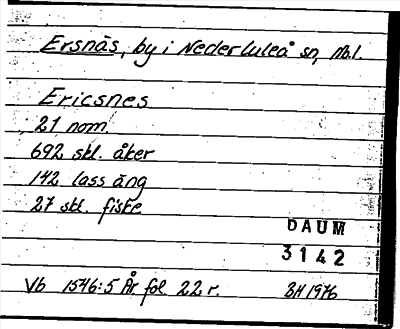 Ersnäs, by i Nederluleå sn, Nb.l.
Ericsnes
21 nom.
692 skl. åker
142 lass äng
27 skl. fiske
DAUM
3142
Vb 1546:5 År fol. 22 r. BH 1976